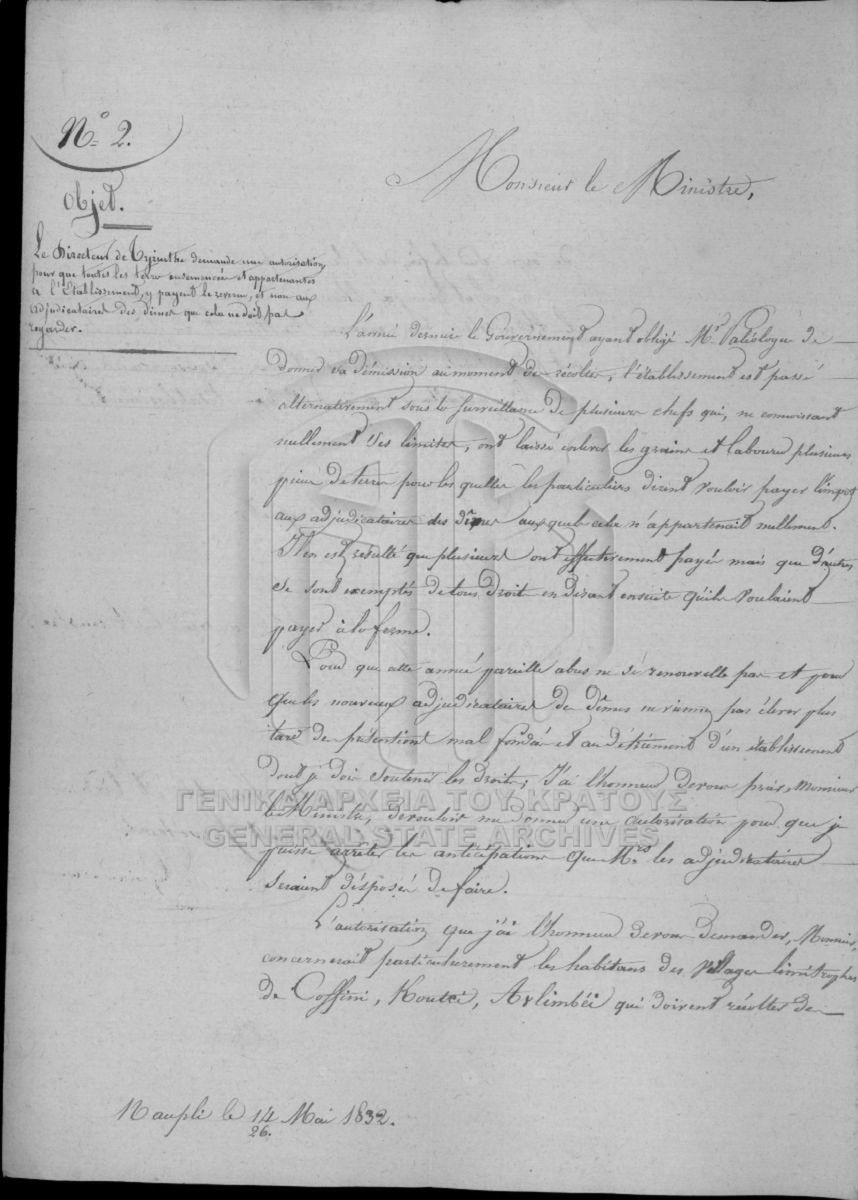 N.º 2.
Objet.
Le Directeur de Tyrinthe demande une autorisation,
pour que toutes les terres ensemencées et appartenantes
à l'Etablissement, y payent le revenu, et non aux
adjudicataires des dîmes que cela ne doit pas
regarder.
Monsieur le Ministre,
L'année dernière le Gouvernement ayant obligé Mr. Paléologue de
donner sa démission au moment des récoltes, l'établissement est passé
alternativement sous la surveillance de plusieurs chefs qui, ne connoissant
nullement ses limites, ont laissé enlever les grains et labourer plusieurs
pièces de terre pour les quelles les particuliers disent vouloir payer l'impot
aux adjudicataires des dîmes aux quels cela n'appartenait nullement.
Il en est résulté que plusieurs ont effectivement payé mais que d'autres
se sont exemptés de tous droits en disant ensuite qu'ils voulaient
payer à la ferme.
Pour que cette année pareille abus ne se renouvelle pas et pour
que les nouveaux adjudicataires de dîmes ne viennent pas élever plus
tard de prétentions mal fondées et au détriment d'un établissement
dont je dois soutenir les droits; J'ai l'honneur de vous prier, Monsieur
le Ministre, de vouloir me donner une autorisation pour que je
puisse arrêter les anticipations que Mrs les adjudicataires
seraient disposés de faire.
L'autorisation que j'ai l'honneur de vous demander, Monsieur,
concernerait particulièrement les habitans des villages limitrophes
de Coffini, Koutzi, Avlimbéi qui doivent récolter de
Naupli le 14/26. Mai 1832.
ΓΕΝΙΚΑ ΑΡΧΕΙΑ ΤΟΥ ΚΡΑΤΟΥΣ
GENERAL STATE ARCHIVES